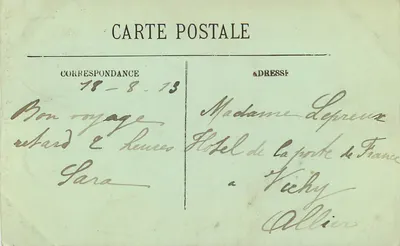 CARTE POSTALE
CORRESPONDANCE
18-8.13
Bon voyage
retard 2 heures
Sara
ADRESSE
Madame Lepreux
Hotel de la porte de France
a Vichy
Allier